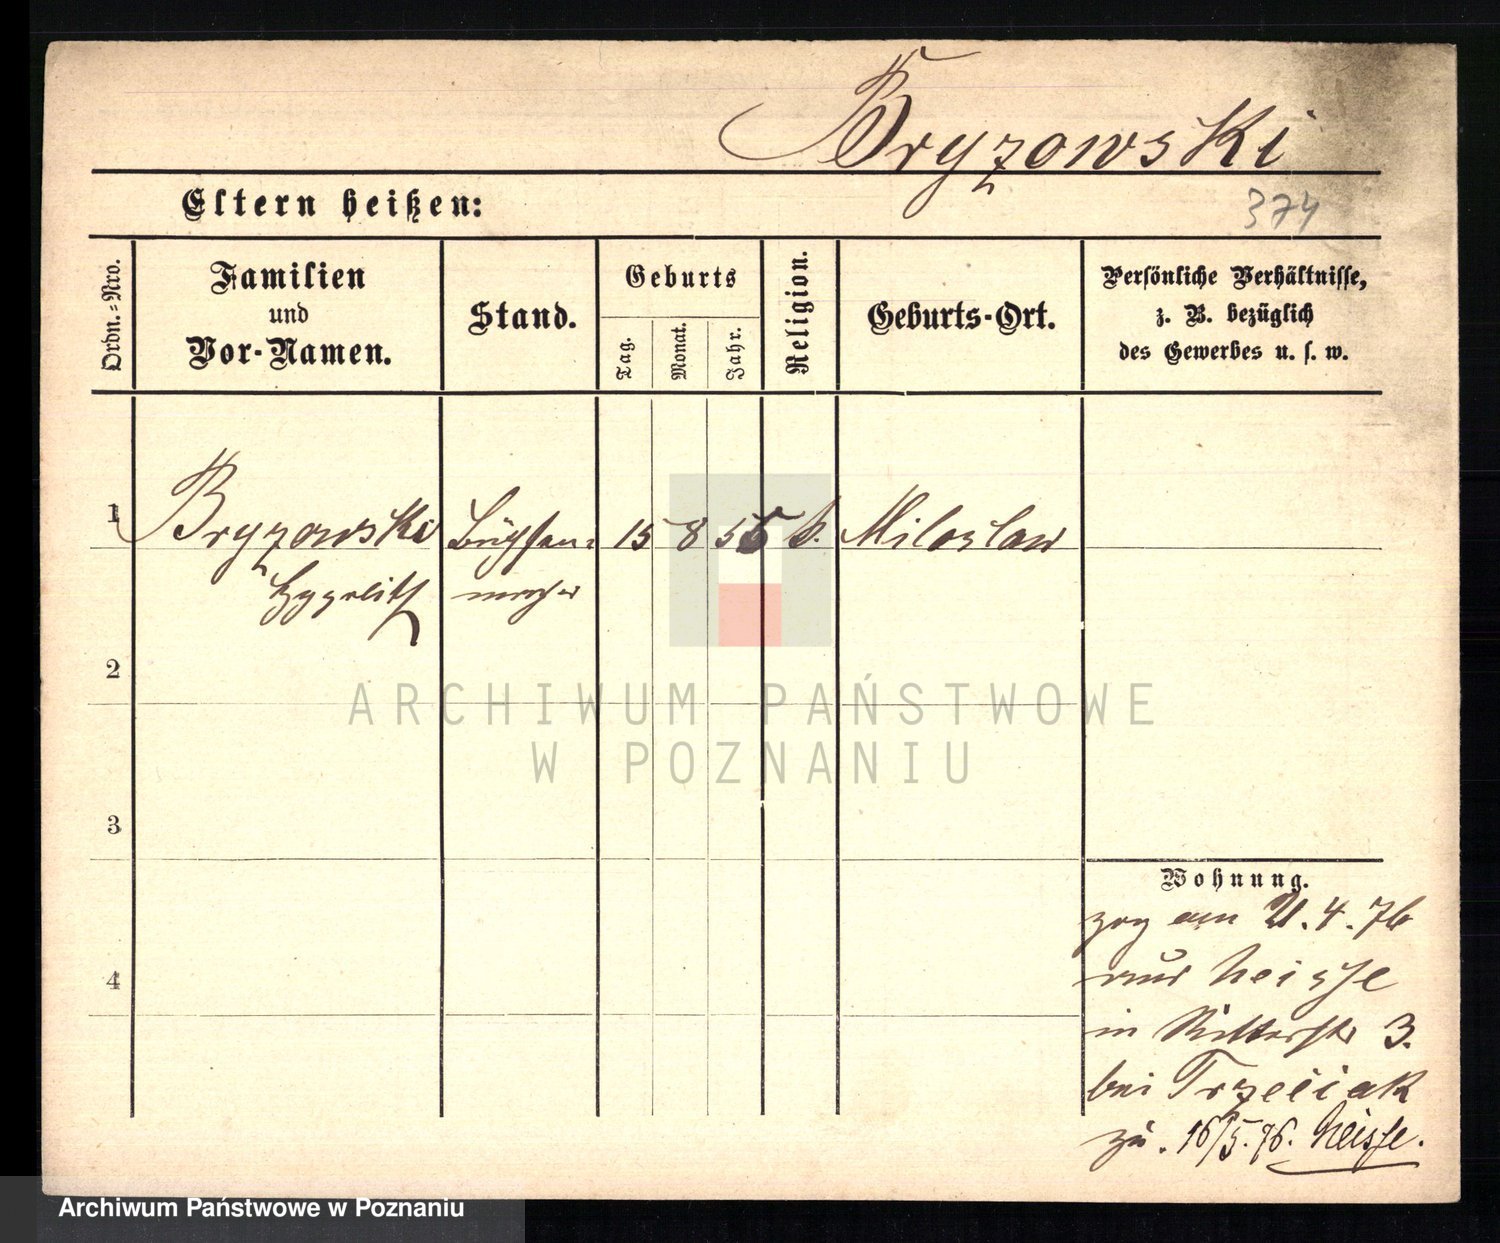 Bryzowski
Eltern heißen:
374
Ordn.=Nro.
Familien
und
Vor-Namen.
Stand.
Geburts
Tag.
Monat.
Jahr.
Religion.
Geburts-Ort.
Persönliche Verhältnisse,
z. B. bezüglich
des Gewerbes u. s. w.
1 Bryzowski Büchsen= 15 8 55 k. Miloslaw
macher
2
3
4
ARCHIWUM PAŃSTWOWE
W POZNANIU
Wohnung.
zog am 21.4.76
aus Neisse
in Ritterstr 3.
bei Trzeciak
zu. 16/5.76. Neisse.
Archiwum Państwowe w Poznaniu